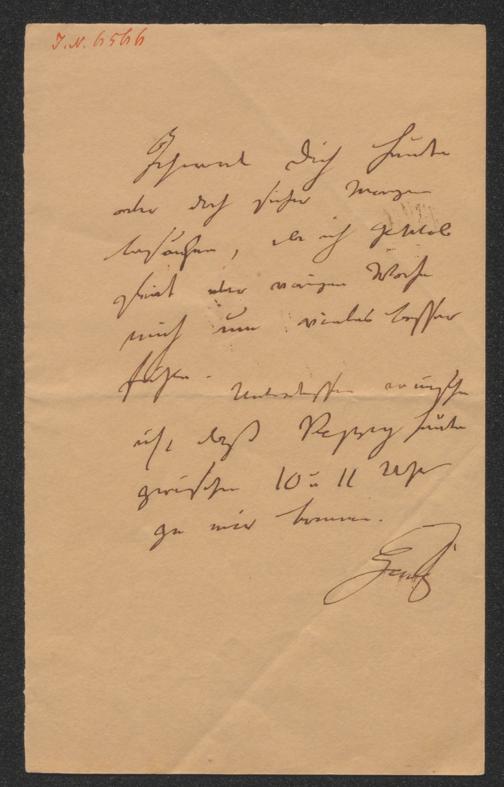 J.N. 6566
Dich heute
oder doch sicher Morgen
besuchen, da ich gottlob
Woche
mich um vieles besser
fühle. Unterdessen wünsche
ich, daß heute
zwischen 10 u 11 Uhr
zu mir komme.